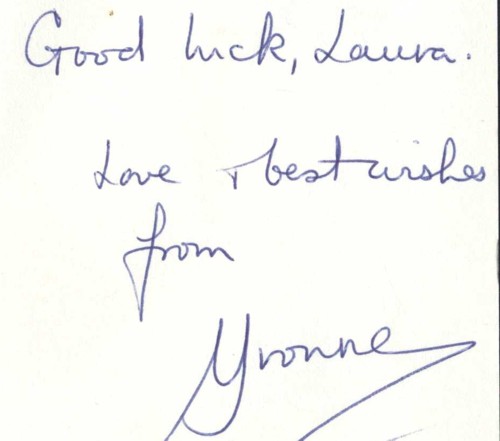 Good luck, Laura.
Love + best wishes
from
Yvonne